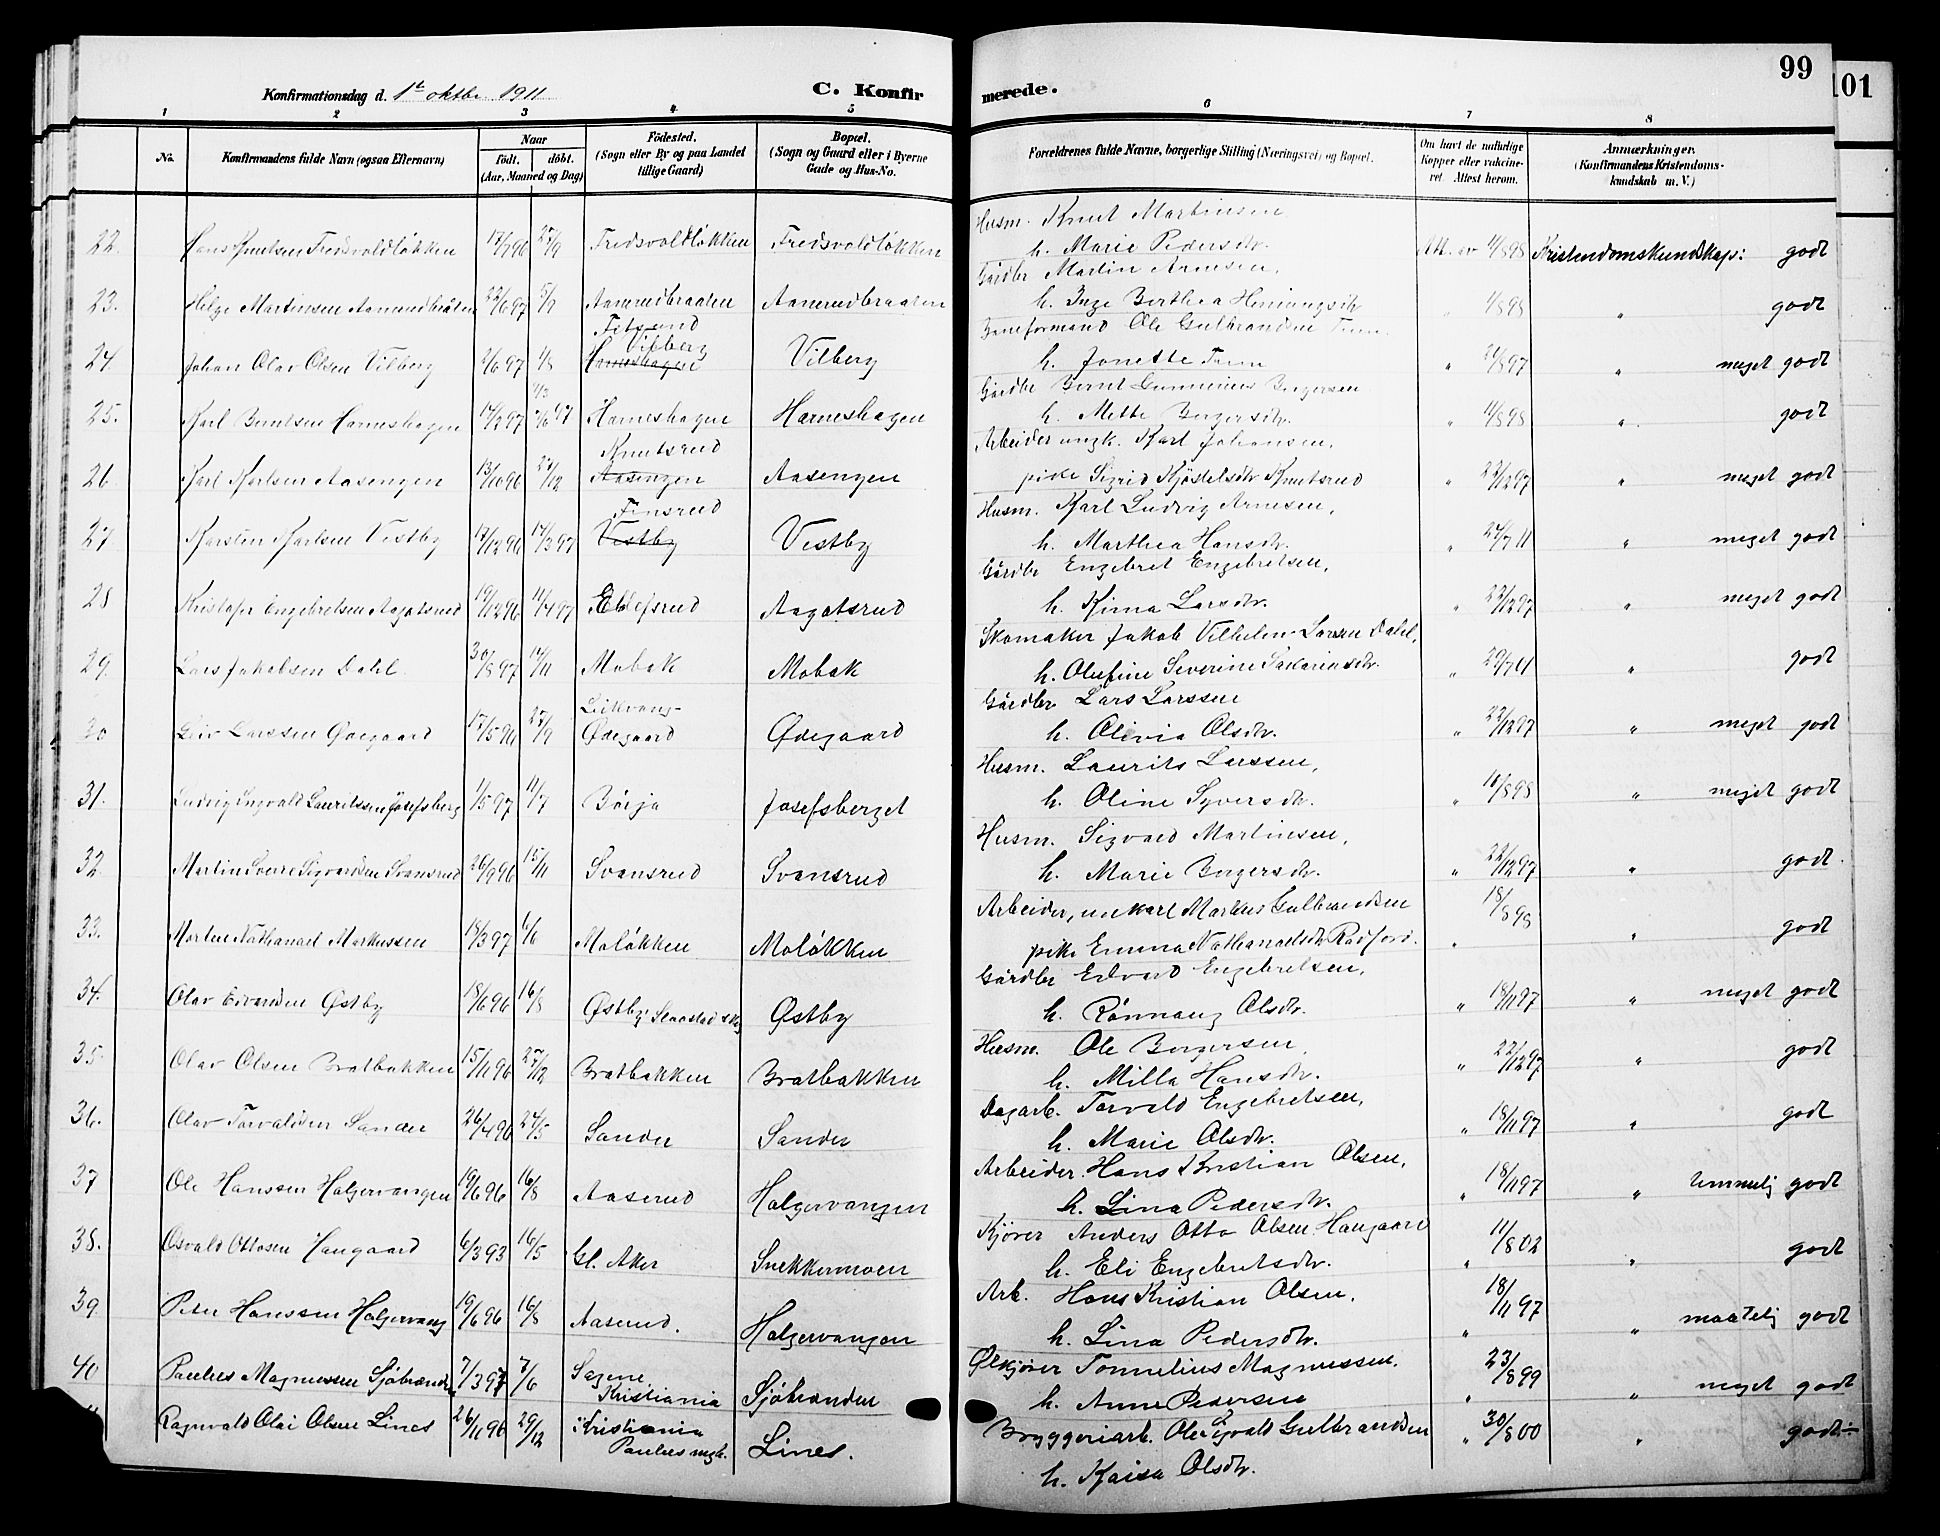 99
101
Konfirmationsdag d. 1ste oktbr. 1911
C. Konfirmerede.
1 2 3 4 5 6 7 8
No.
Konfirmandens fulde Navn (ogsaa Efternavn)
Naar
födt. döbt.
(Aar, Maaned og Dag)
Födested.
(Sogn eller By og paa Landet
tillige Gaard)
Bopæl.
(Sogn og Gaard eller i Byerne
Gade og Hus-No.
Forældrenes fulde Navne, borgerlige Stilling (Næringsvei) og Bopæl.
Om havt de naturlige
Kopper eller vaccine-
ret. Attest herom.
Anmærkninger.
(Konfirmandens Kristendoms-
kundskab m. V.)
Husm. Knut Martinsen
22. Hans Knutsen Fredsvoldløkken 17/7 96 27/9 Fredsvoldløkken Fredsvoldløkken h. Marie Pedersdtr. Att. av 11/8 98 Kristendomskundskap: godt
Gårdbr Martin Arnesen,
23. Helge Martinsen Aamundbråten 22/6 97 5/9 Aamrudbraaten Aamrudbraaten h. Inge Berthea Henningsdtr " 11/8 98 " godt
Fetsund
Baneformand Ole Gulbrandsen
Vilberg
24. Johan Olav Olsen Vilberg 2/6 97 1/8 Harneshagen Vilberg h. Jonette " 21/8 97 " meget godt
Gårdbr Bernt Gunnerius Bergersen
25. Karl Berntsen Harneshagen 14/2 97 Harneshagen Harneshagen h. Mette Bergersdtr. " 11/8 98 " godt
Knutsrud
Arbeider ungk. Karl Johansen,
26. Karl Karlsen Aasengen 13/10 96 27/12 Aasengen Aasengen pike Sigrid Kjøstelsdtr Knutsrud " 22/12 97 " meget godt
Finsrud
Husm. Karl Ludvig Arnesen,
27. Karsten Karlsen Vestby 17/12 96 14/3 97 Vestby Vestby h. Marthea Hansdtr. " 24/7 11 " meget godt
Gårdbr Engebret Engebretsen,
28 Kristofer Engebretsen Aagotsrud 19/12 96 11/4 97 Ellefsrud Aagotsrud h. Kirna Larsdtr. " 22/12 97 " meget godt
Skomaker Jakob Vilhelm Larsen Dahl,
29. Lars Jakobsen Dahl 30/8 97 14/11 Mobak Mobak h. Olufine Severine Sakariasdtr. " 29/7 01 " godt
Gårdbr Lars Larssen
30 Leiv Larssen Ødegaard 17/5 96 27/9 Ødegaard Ødegaard h. Olivia Olsdtr. " 22/12 97 " meget godt
Husm. Laurits Larssen,
31. Ludvig Ingvald Lauritssen Josefsberg 1/5 97 11/7 Børja Josefsberget h. Oline Syversdtr. " 10/8 98 " meget godt
Husm. Sigvard Martinsen,
32. Martin Sverre Sigvardsen Svansrud 26/9 96 15/11 Svansrud Svansrud h. Marie Bergersdtr. " 22/12 97 " godt.
Arbeider, unkarl Markus Gulbrandsen
33. Morten Nathanael Markussen 18/3 97 6/6 Moløkken Moløkken pike Emma Nathanaelsdtr " 18/8 98 " godt
Gårdbr Edvard Engebretsen,
34. Olav Edvardsen Østby 18/6 96 16/8 Østby, Østby h. Rønnaug Olsdtr. " 18/11 97 " meget godt
Husm. Ole Bergersen,
35. Olav Olsen Bratbakken 15/11 96 27/12 Bratbakken Bratbakken h. Milla Hansdtr. " 22/12 97 " godt
Dagarb. Torvald Engebretsen,
36. Olav Torvaldsen Sander 26/4 96 24/5 Sander Sander h. Marie Olsdtr. " 18/11 97 " godt
Arbeider. Hans Kristian Olsen,
37 Ole Hanssen Holgervangen 19/6 96 16/8 Aaserud Holgervangen h. Lina Pedersdtr. " 18/11 97 " temmelig godt
Kjører Anders Otto Olsen Haugaard
38. Osvald Ottosen Haugaard 6/3 93 16/5 Gl. Aker Snekkermoen h. Eli Engebretsdtr. " 11/8 02 " godt
Arb. Hans Kristian Olsen,
39. Peter Hanssen Holgervang 19/6 96 16/8 Aaserud. Holgervangen h. Lina Pedersdtr. " 18/11 97 " maatelig godt
Ølkjører Tonnelius Magnussen.
40 Paulus Magnussen Sjøbranden 7/3 97 7/6 Sagene Kristiania Sjøbranden h. Anne Pedersen " 23/8 99 " meget godt
Bryggeriarb. Ole Sigvald Gulbrandsen
Ragnvald Olai Olsen Lines 26/11 96 29/12 Kristiania Paulus mgh. Lines. h. Kaisa Olsdtr. " 30/8 00 " godt